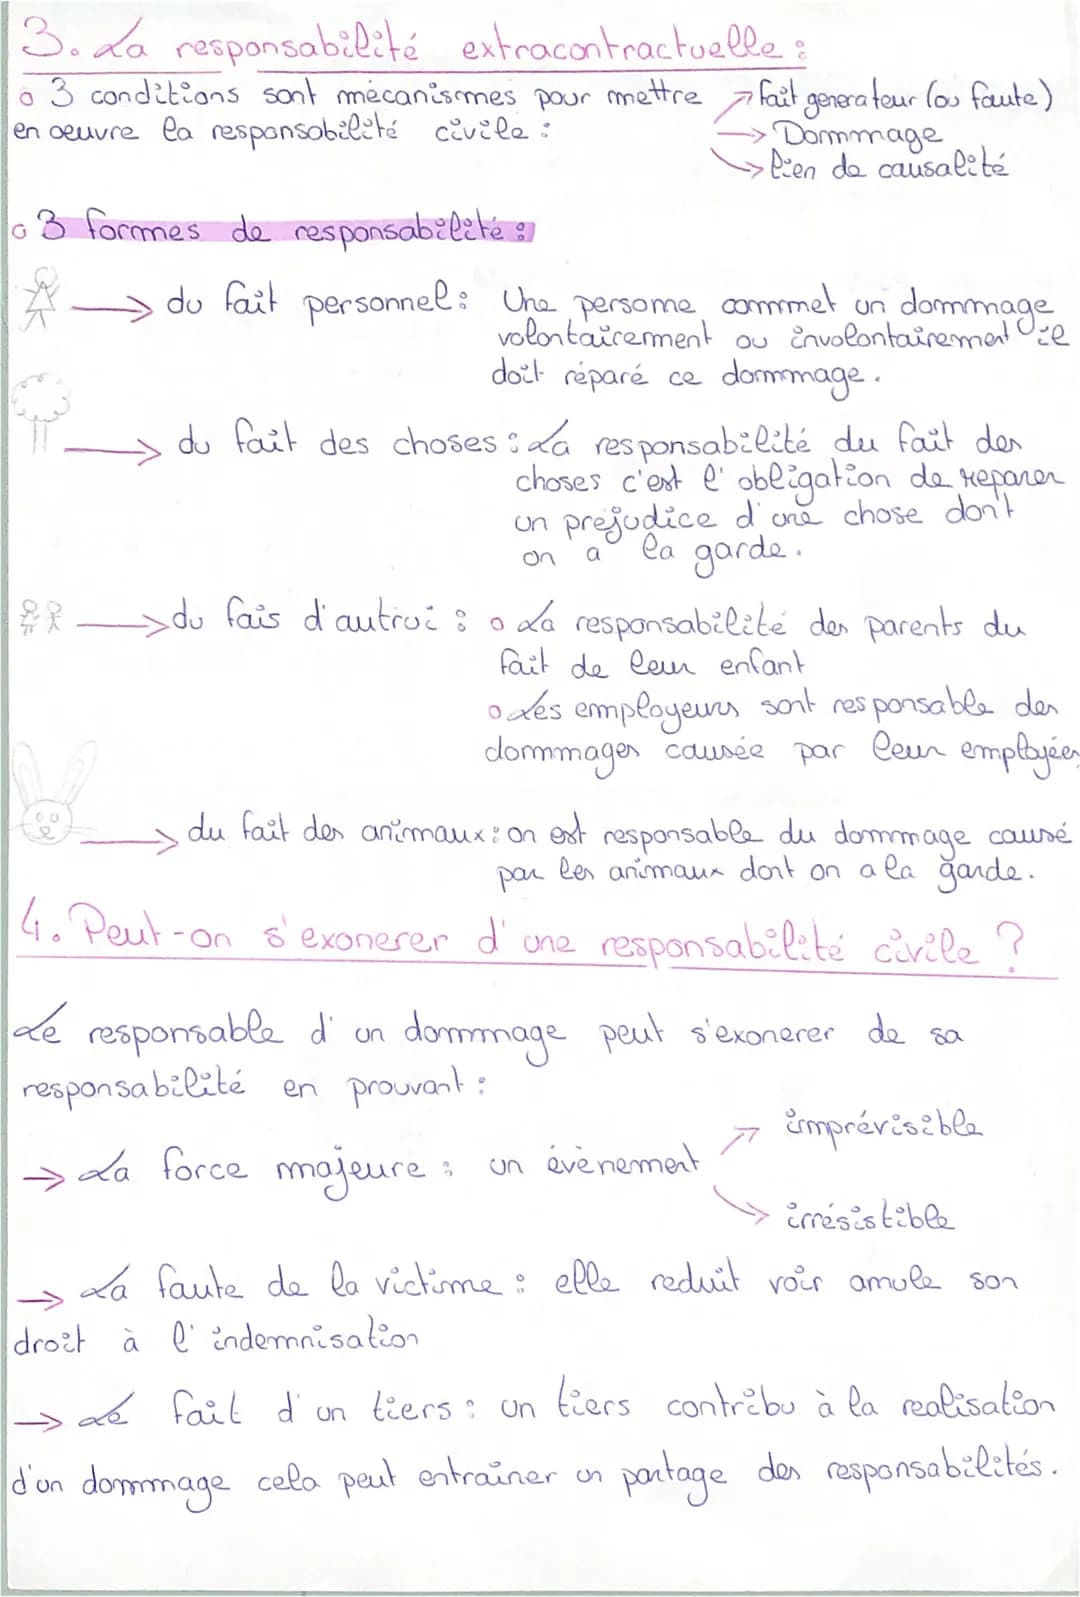 3. La responsabilité extracontractuelle :
o 3 conditions sont mécanismes pour mettre
en oeuvre la responsabilité civile :
↗ fait generateur (ou faute)
→ Dommage
↘ lien de causalité
o 3 formes de responsabilité :
→ du fait personnel : Une persone commet un dommage
volontairement ou involontairement il
doit réparé ce dommage.
→ du fait des choses : La responsabilité du fait des
choses c'est l'obligation de reparer
un prejudice d'une chose dont
on a la garde.
→ du fais d'autrui : o La responsabilité des parents du
fait de leur enfant
o Les employeurs sont responsable des
dommages causée par leur employées
→ du fait des animaux : on est responsable du dommage causé
par les animaux dont on a la garde.
4. Peut-on s'exonerer d'une responsabilité civile ?
Le responsable d'un dommage peut s'exonerer de sa
responsabilité en prouvant :
→ La force majeure : un évènement
↗ imprévisible
↘ irrésistible
→ La faute de la victime : elle reduit voir amule son
droit à l'indemnisation
→ Le fait d'un tiers : un tiers contribu à la realisation
d'un dommage cela peut entrainer un partage des responsabilités.